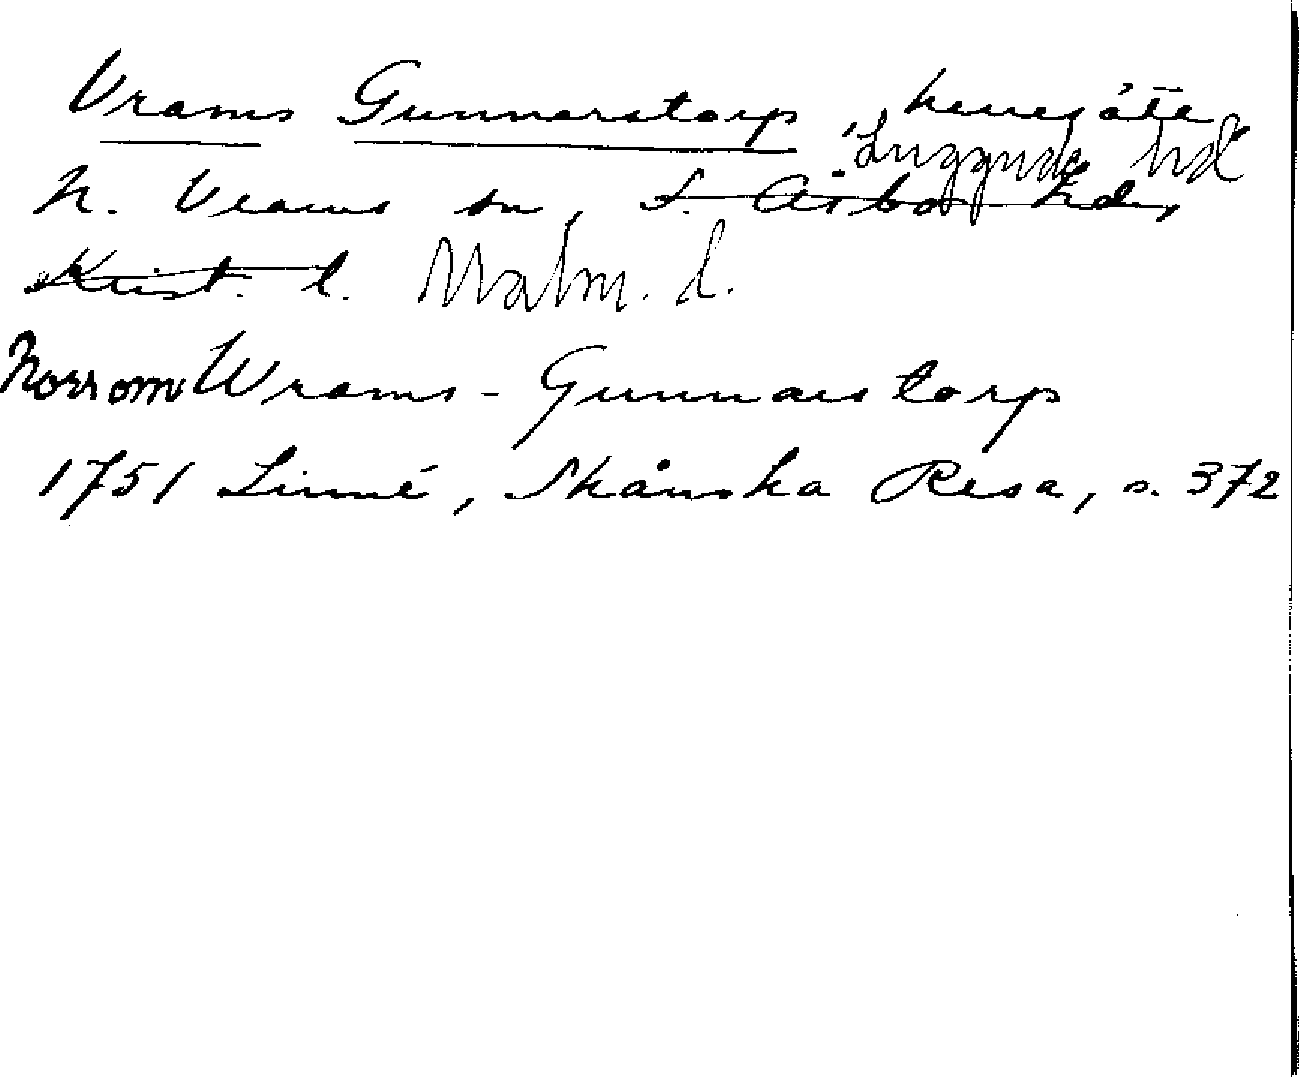 Vrams Gunnarstorp, herresäte
Luggude hd
N. Vrams sn, S. Åsbo hd,
Krist. l. Malm. l.
Norrom Wrams-Gunnarstorp
1751 Linné, Skånska Resa, s. 372